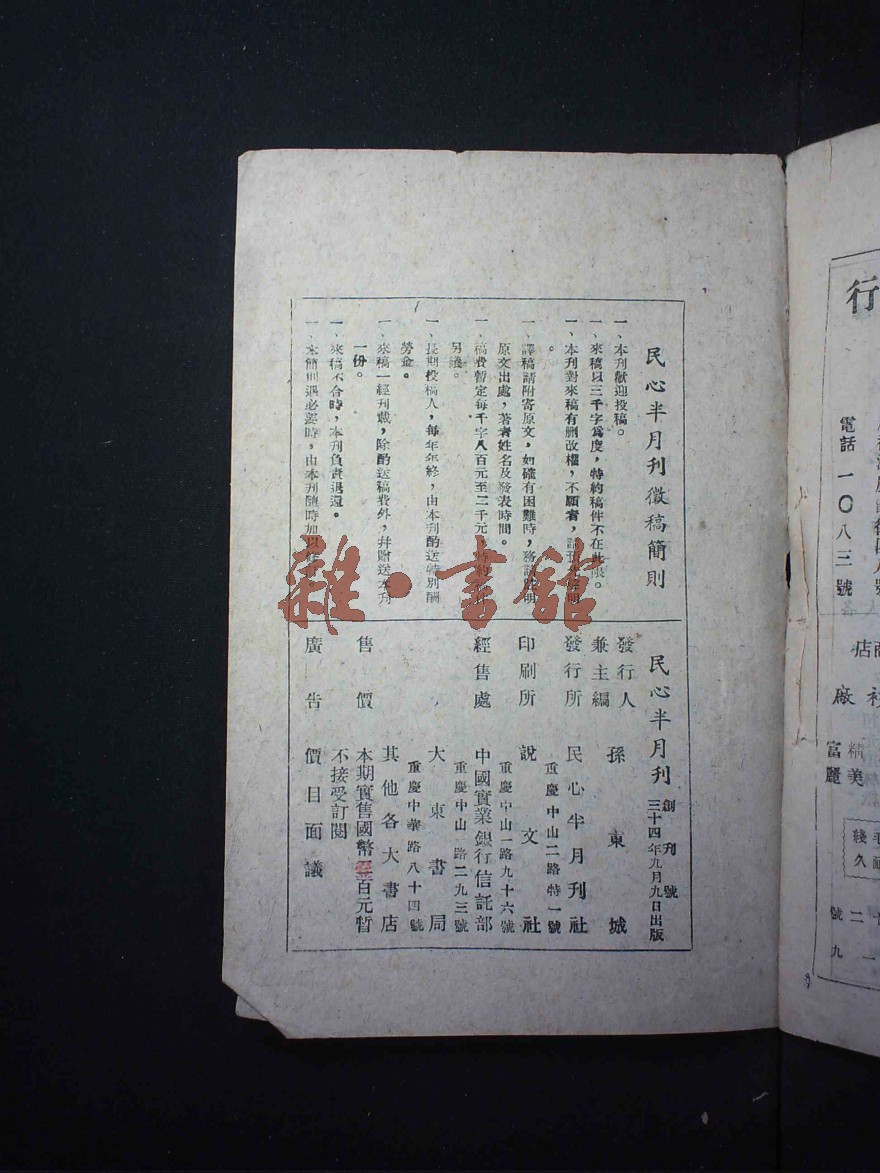 民心半月刊徵稿簡則
一、本刊歡迎投稿。
一、來稿以三千字爲度，特約稿件不在此限。
一、本刊對來稿有删改權，不願者，請預先聲明
。
一、譯稿請附寄原文，如確有困難時，務請註明
原文出處，著者姓名及發表時間。
一、稿費暫定每千字八百元至二千元，特約稿件
另議。
一、長期投稿人，每年年終，由本刊酌送特別酬
勞金。
一、來稿一經刊載，除酌送稿費外，幷贈送本刊
一份。
一、來稿不合時，本刊負責退還。
一、本簡則遇必要時，由本刊隨時加以修習。
民心半月刊 創刊號
三十四年九月九日出版
發行人
兼主編 孫東城
發行所 民心半月刊社
重慶中山二路特一號
印刷所 說文社
重慶中山一路九十六號
經售處 中國實業銀行信託部
重慶中山一路二九三號
大東書局
重慶中華路八十四號
其他各大書店
售價 本期實售國幣 百元暫
不接受訂閱
廣告 價目面議
雜·書館
行
電話 一〇八三號
商店
廠
精美
富麗
綫久
號九
二一